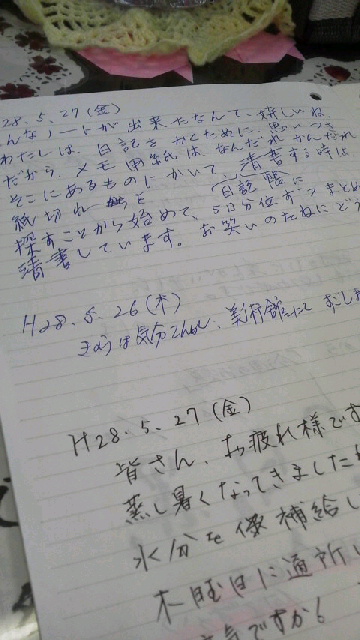 28.5.27(金)
んなノートが出来たなんて、嬉しいね
わたしは、日記をかくために、思いつき
だから、メモ用紙は、なんだれかんだれ
そこにあるものにかいて、清書する時は
日記帳に
紙切れを
探すことから始めて、5日分位ずつまとめ
清書しています。お笑いのたねにどう
H28.5.26(木)
きょうは気分てんかん、美術館にて
H28.5.27(金)
皆さん、お疲れ様です
蒸し暑くなってきました
水分を 補給し
木 日に通所し
気ですか